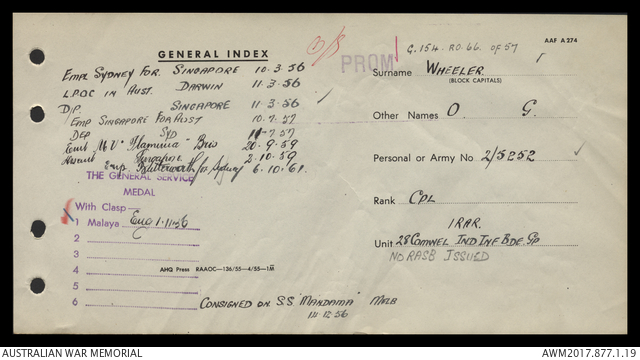 AAF A274
G.154. RO.66. OF 57
GENERAL INDEX
PROM
EMPL SYDNEY FOR SINGAPORE 10.3.56
LPOC IN AUST. DARWIN 11.3.56
D/P. SINGAPORE 11.3.56
EMP SINGAPORE FOR AUST 10.7.57
DEP SYD 11.7.57
Emb M.V. "Flaminia" Bris 20.9.59
Singapore 2.10.59
Emp. Butterworth for Sydney 6.10.61
THE GENERAL SERVICE
MEDAL
With Clasp—
1 Malaya 1.11.56
2
3
4
5
6
AHQ Press RAAOC—136/55—4/55—1M
CONSIGNED ON S.S. "MANDAMA" MELB
14.12.56
Surname WHEELER
(BLOCK CAPITALS)
Other Names O. G.
Personal or Army No 2/5252
Rank CPL
1 RAR.
Unit 28 COMWEL IND INF BDE GP
NO RASB ISSUED
AUSTRALIAN WAR MEMORIAL
AWM2017.877.1.19